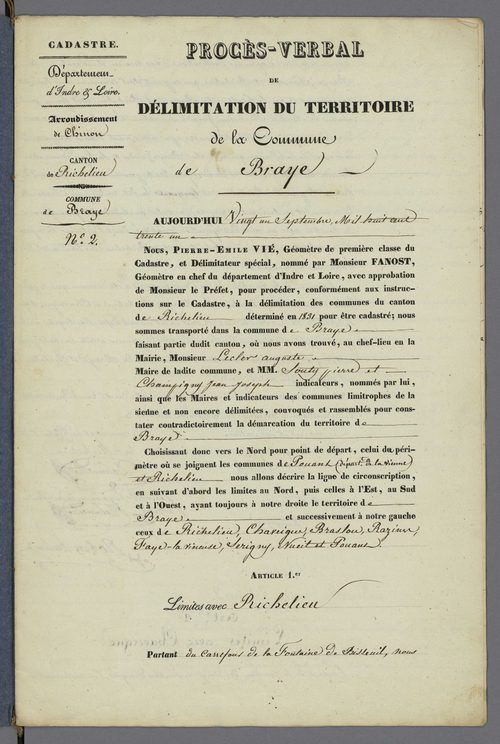 CADASTRE.
Département
d'Indre & Loire.
Arrondissement
de Chinon
CANTON
de Richelieu
COMMUNE
de Braye
N.º 2.
PROCÈS-VERBAL
DE
DÉLIMITATION DU TERRITOIRE
de la Commune
de Braye
AUJOURD'HUI Vingt un Septembre, Mil huit cent
trente un
Nous, Pierre-Emile VIÉ, Géomètre de première classe du
Cadastre, et Délimitateur spécial, nommé par Monsieur FANOST,
Géomètre en chef du département d'Indre et Loire, avec approbation
de Monsieur le Préfet, pour procéder, conformément aux instruc-
tions sur le Cadastre, à la délimitation des communes du canton
de Richelieu déterminé en 1831 pour être cadastré; nous
sommes transporté dans la commune de Braye
faisant partie dudit canton, où nous avons trouvé, au chef-lieu en la
Mairie, Monsieur Lecler auguste
Maire de ladite commune, et MM. pierre et
Champigny jean joseph indicateurs, nommés par lui,
ainsi que les Maires et indicateurs des communes limitrophes de la
sienne et non encore délimitées, convoqués et rassemblés pour cons-
tater contradictoirement la démarcation du territoire de
Braye
Choisissant donc vers le Nord pour point de départ, celui du péri-
mètre où se joignent les communes de Pouant (Départ. de la Vienne)
et Richelieu nous allons décrire la ligne de circonscription,
en suivant d'abord les limites au Nord, puis celles à l'Est, au Sud
et à l'Ouest, ayant toujours à notre droite le territoire de
Braye et successivement à notre gauche
ceux de Richelieu, Chaveigne, Braslou, Razines,
Faye-la-vineuse, Serigny, Nueil et Pouant.
Article 1.er
Limites avec Richelieu
Partant du carrefour de la Fontaine de Bisseuil, nous